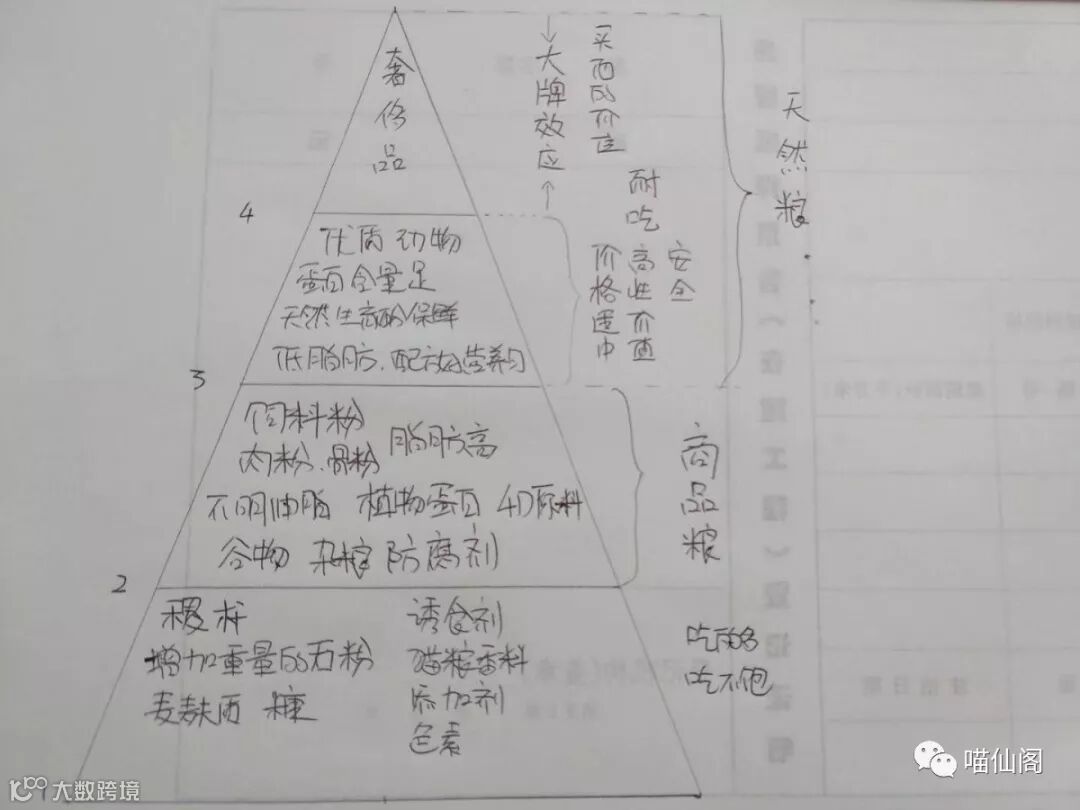 奢侈品
大牌效应
天然粮
耐吃
4
优质动物
蛋白含量足
天然生育酚保鲜
价格适中
高性价值
安全
低脂肪、配方营养均
3
饲料粉
肉粉、骨粉
脂肪高
不明油脂 植物蛋白 4D原料
谷物 杂粮 防腐剂
商品粮
2
诱食剂
增加重量的石粉
猫粮香料
麦麸质 糠
添加剂
色素
吃的多
吃不饱
喵仙阁
大数跨境